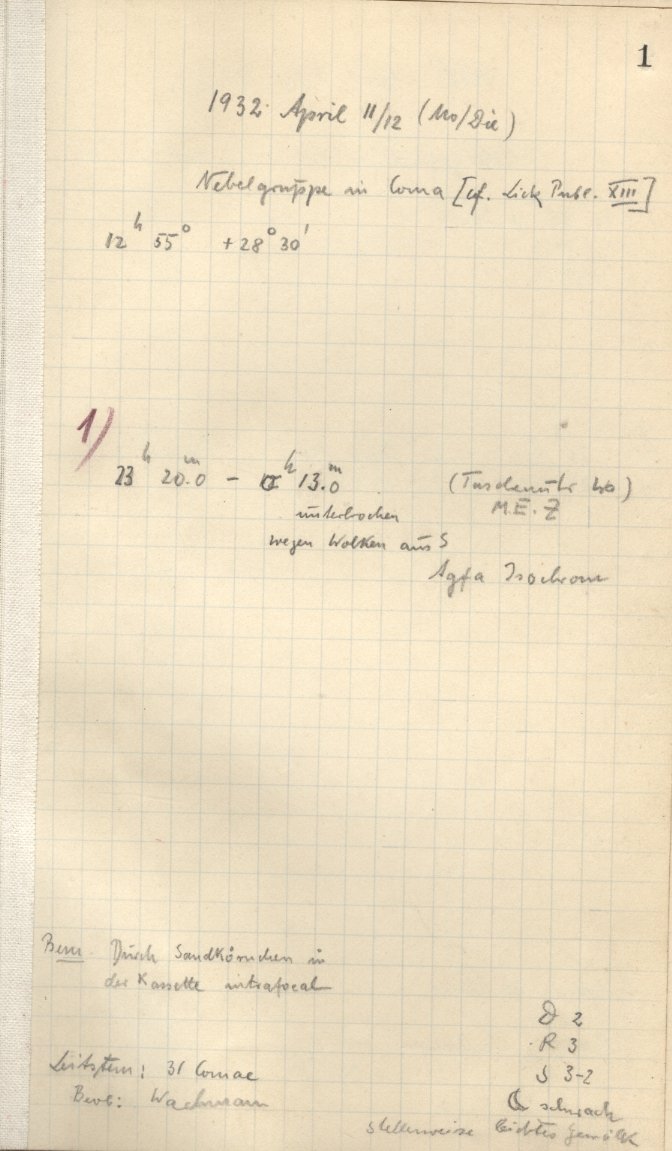 1
1932 April 11/12 (Mo/Die)
Nebelgruppe in Coma [cf. Lick Publ. XIII]
12h 55° +28° 30'
1)
23h 20.m0 – 0h 13.m0 (Taschenuhr Wa)
M.E.Z
unterbrochen
wegen Wolken aus S
Agfa Isochrom
Bem Durch Sandkörnchen in
der Kassette intrafocal
D 2
R 3
Leitstern: 31 Comae
S 3-2
Beob: Wachmann
schwach
stellenweise leichtes Gewölk